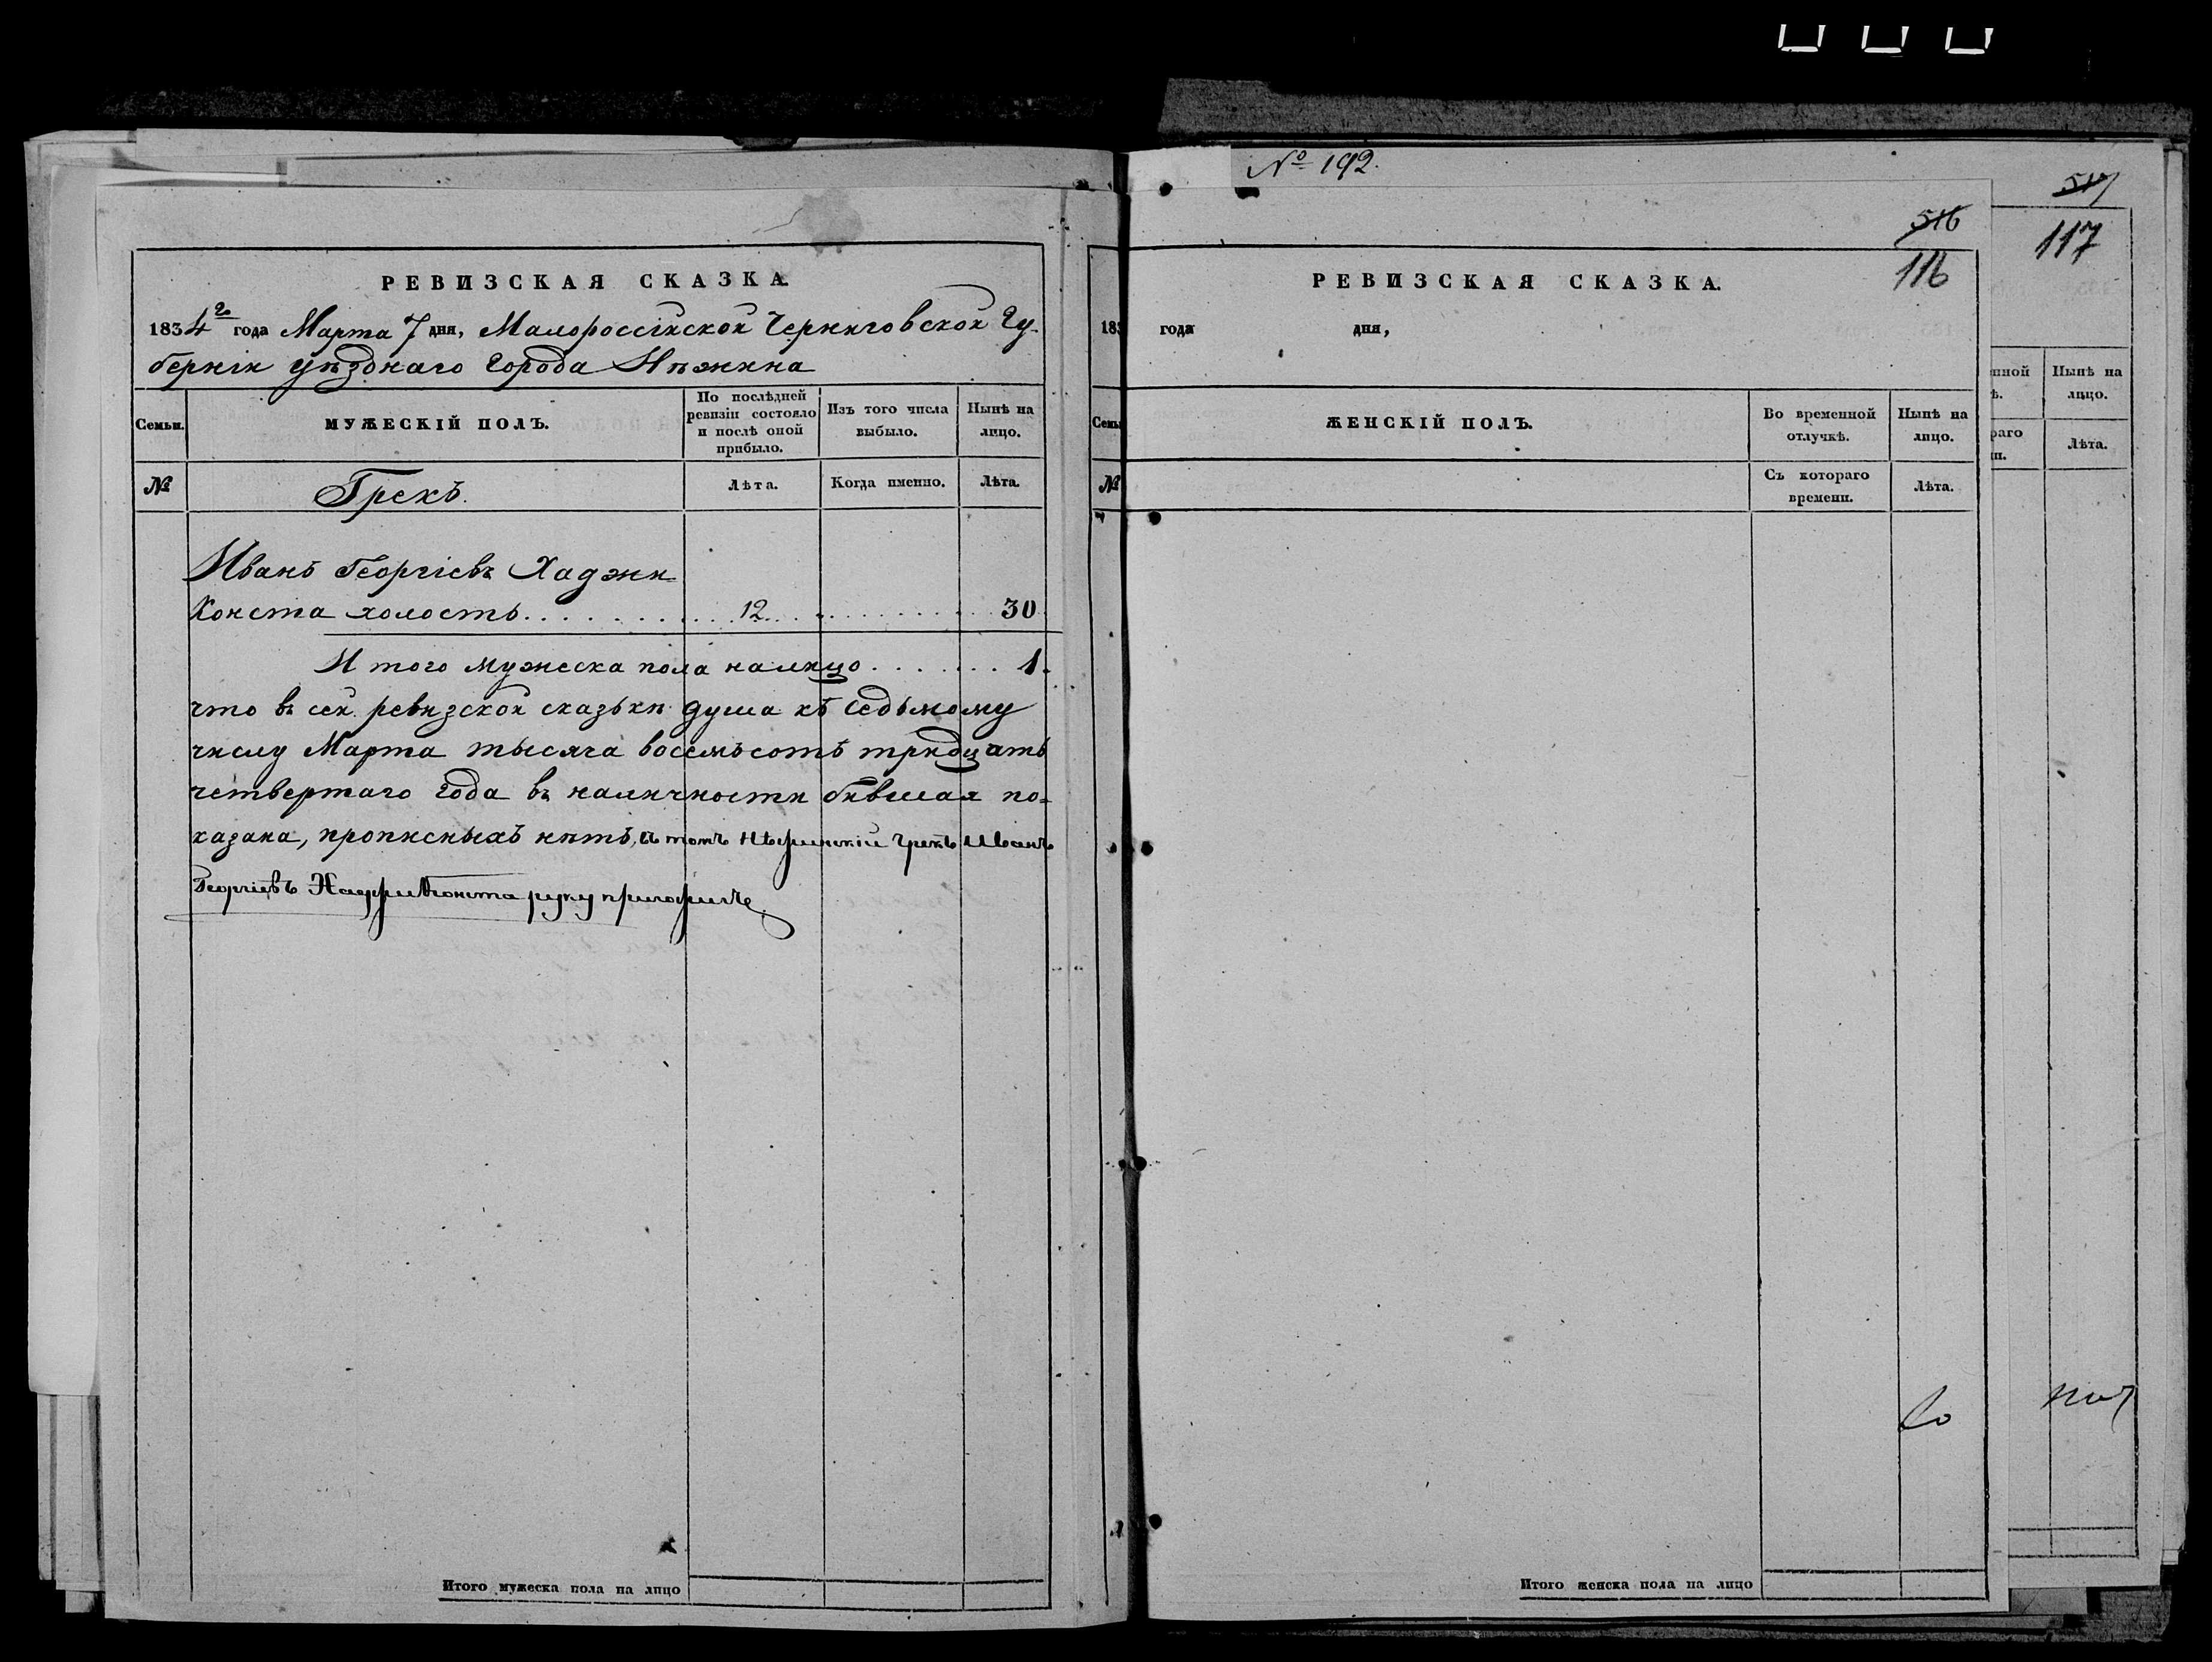 РЕВИЗСКАЯ СКАЗКА.
1834го года Марта 7 дня, Малороссійской Черниговской Гу-
берніи уѣзднаго города Нѣжина
Семьи.
МУЖЕСКІЙ ПОЛЪ.
По послѣдней ревизіи состояло и послѣ оной прибыло.
Изъ того числа выбыло.
Нынѣ на лицо.
№
Грекъ.
Лѣта.
Когда именно.
Лѣта.
Иванъ Георгіевъ Хаджи
Конста холостъ . . . 12 . . . 30
Итого мужеска пола налицо . . . 1.
что въ сей ревизской сказьки душа къ седьмому
числу Марта тысяча восемьсотъ тридцать
четвертаго года въ наличности бывшая по=
казана, прописныхъ нѣтъ, въ томъ Нѣжинскій Грекъ Иванъ
Георгіевъ Хаджи Конста руку приложилъ.
Итого мужеска пола на лицо
№ 192.
516
116
РЕВИЗСКАЯ СКАЗКА.
183 года дня,
Семь
ЖЕНСКІЙ ПОЛЪ.
Во временной отлучкѣ.
Нынѣ на лицо.
№
Съ котораго времени.
Лѣта.
Итого женска пола на лицо
517
117
нной
ѣ.
Нынѣ на лицо.
раго
и.
Лѣта.